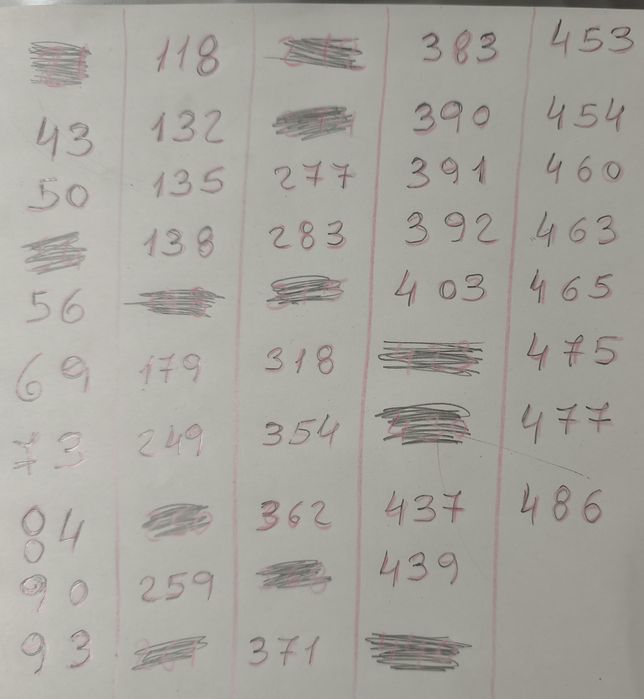 118 383 453
43 132 390 454
50 135 277 391 460
138 283 392 463
56 403 465
69 179 318 475
73 249 354 477
84 362 437 486
90 259 439
93 371